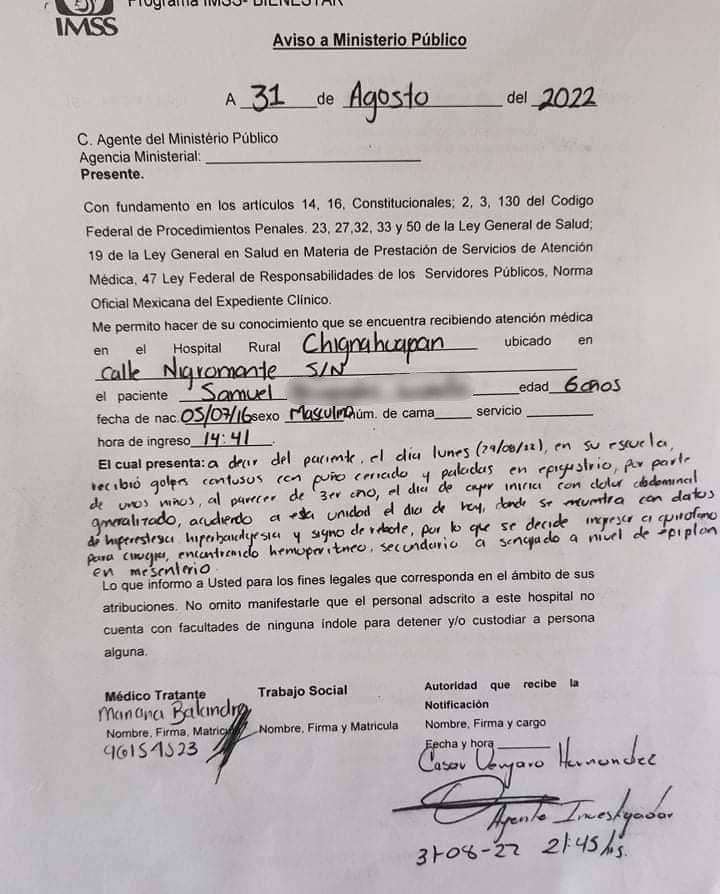 Programa IMSS- BIENESTAR
IMSS
Aviso a Ministerio Público
A 31 de Agosto del 2022
C. Agente del Ministério Público
Agencia Ministerial:
Presente.
Con fundamento en los articulos 14, 16, Constitucionales; 2, 3, 130 del Codigo
Federal de Procedimientos Penales. 23, 27,32, 33 y 50 de la Ley General de Salud;
19 de la Ley General en Salud en Materia de Prestación de Servicios de Atención
Médica, 47 Ley Federal de Responsabilidades de los Servidores Públicos, Norma
Oficial Mexicana del Expediente Clínico.
Me permito hacer de su conocimiento que se encuentra recibiendo atención médica
en el Hospital Rural Chignahuapan ubicado en
Calle Nigromante S/N
el paciente Samuel edad 6 años
fecha de nac. 05/07/16 sexo Masculino núm. de cama servicio
hora de ingreso 14:41.
El cual presenta: a decir del paciente, el día lunes (29/08/22), en su escuela,
recibió golpes contusos con puño cerrado y patadas en epigastrio, por parte
de unos niños, al parecer de 3er año, el día de ayer inicia con dolor abdominal
generalizado, acudiendo a esta unidad el día de hoy, donde se encuentra con datos
de hiperestesia hiperbaralgesia y signo de rebote, por lo que se decide ingresar a quirofano
para cirugia, encontrando hemoperitneo, secundario a sangrado a nivel de epiplon
en mesenterio.
Lo que informo a Usted para los fines legales que corresponda en el ámbito de sus
atribuciones. No omito manifestarle que el personal adscrito a este hospital no
cuenta con facultades de ninguna índole para detener y/o custodiar a persona
alguna.
Médico Tratante
Mariana Balandra
Nombre, Firma, Matricula
Trabajo Social
Nombre, Firma y Matricula
Autoridad que recibe la
Notificación
Nombre, Firma y cargo
Fecha y hora
Hernandez
Agente Investigador
31-08-22 21:45 hs.